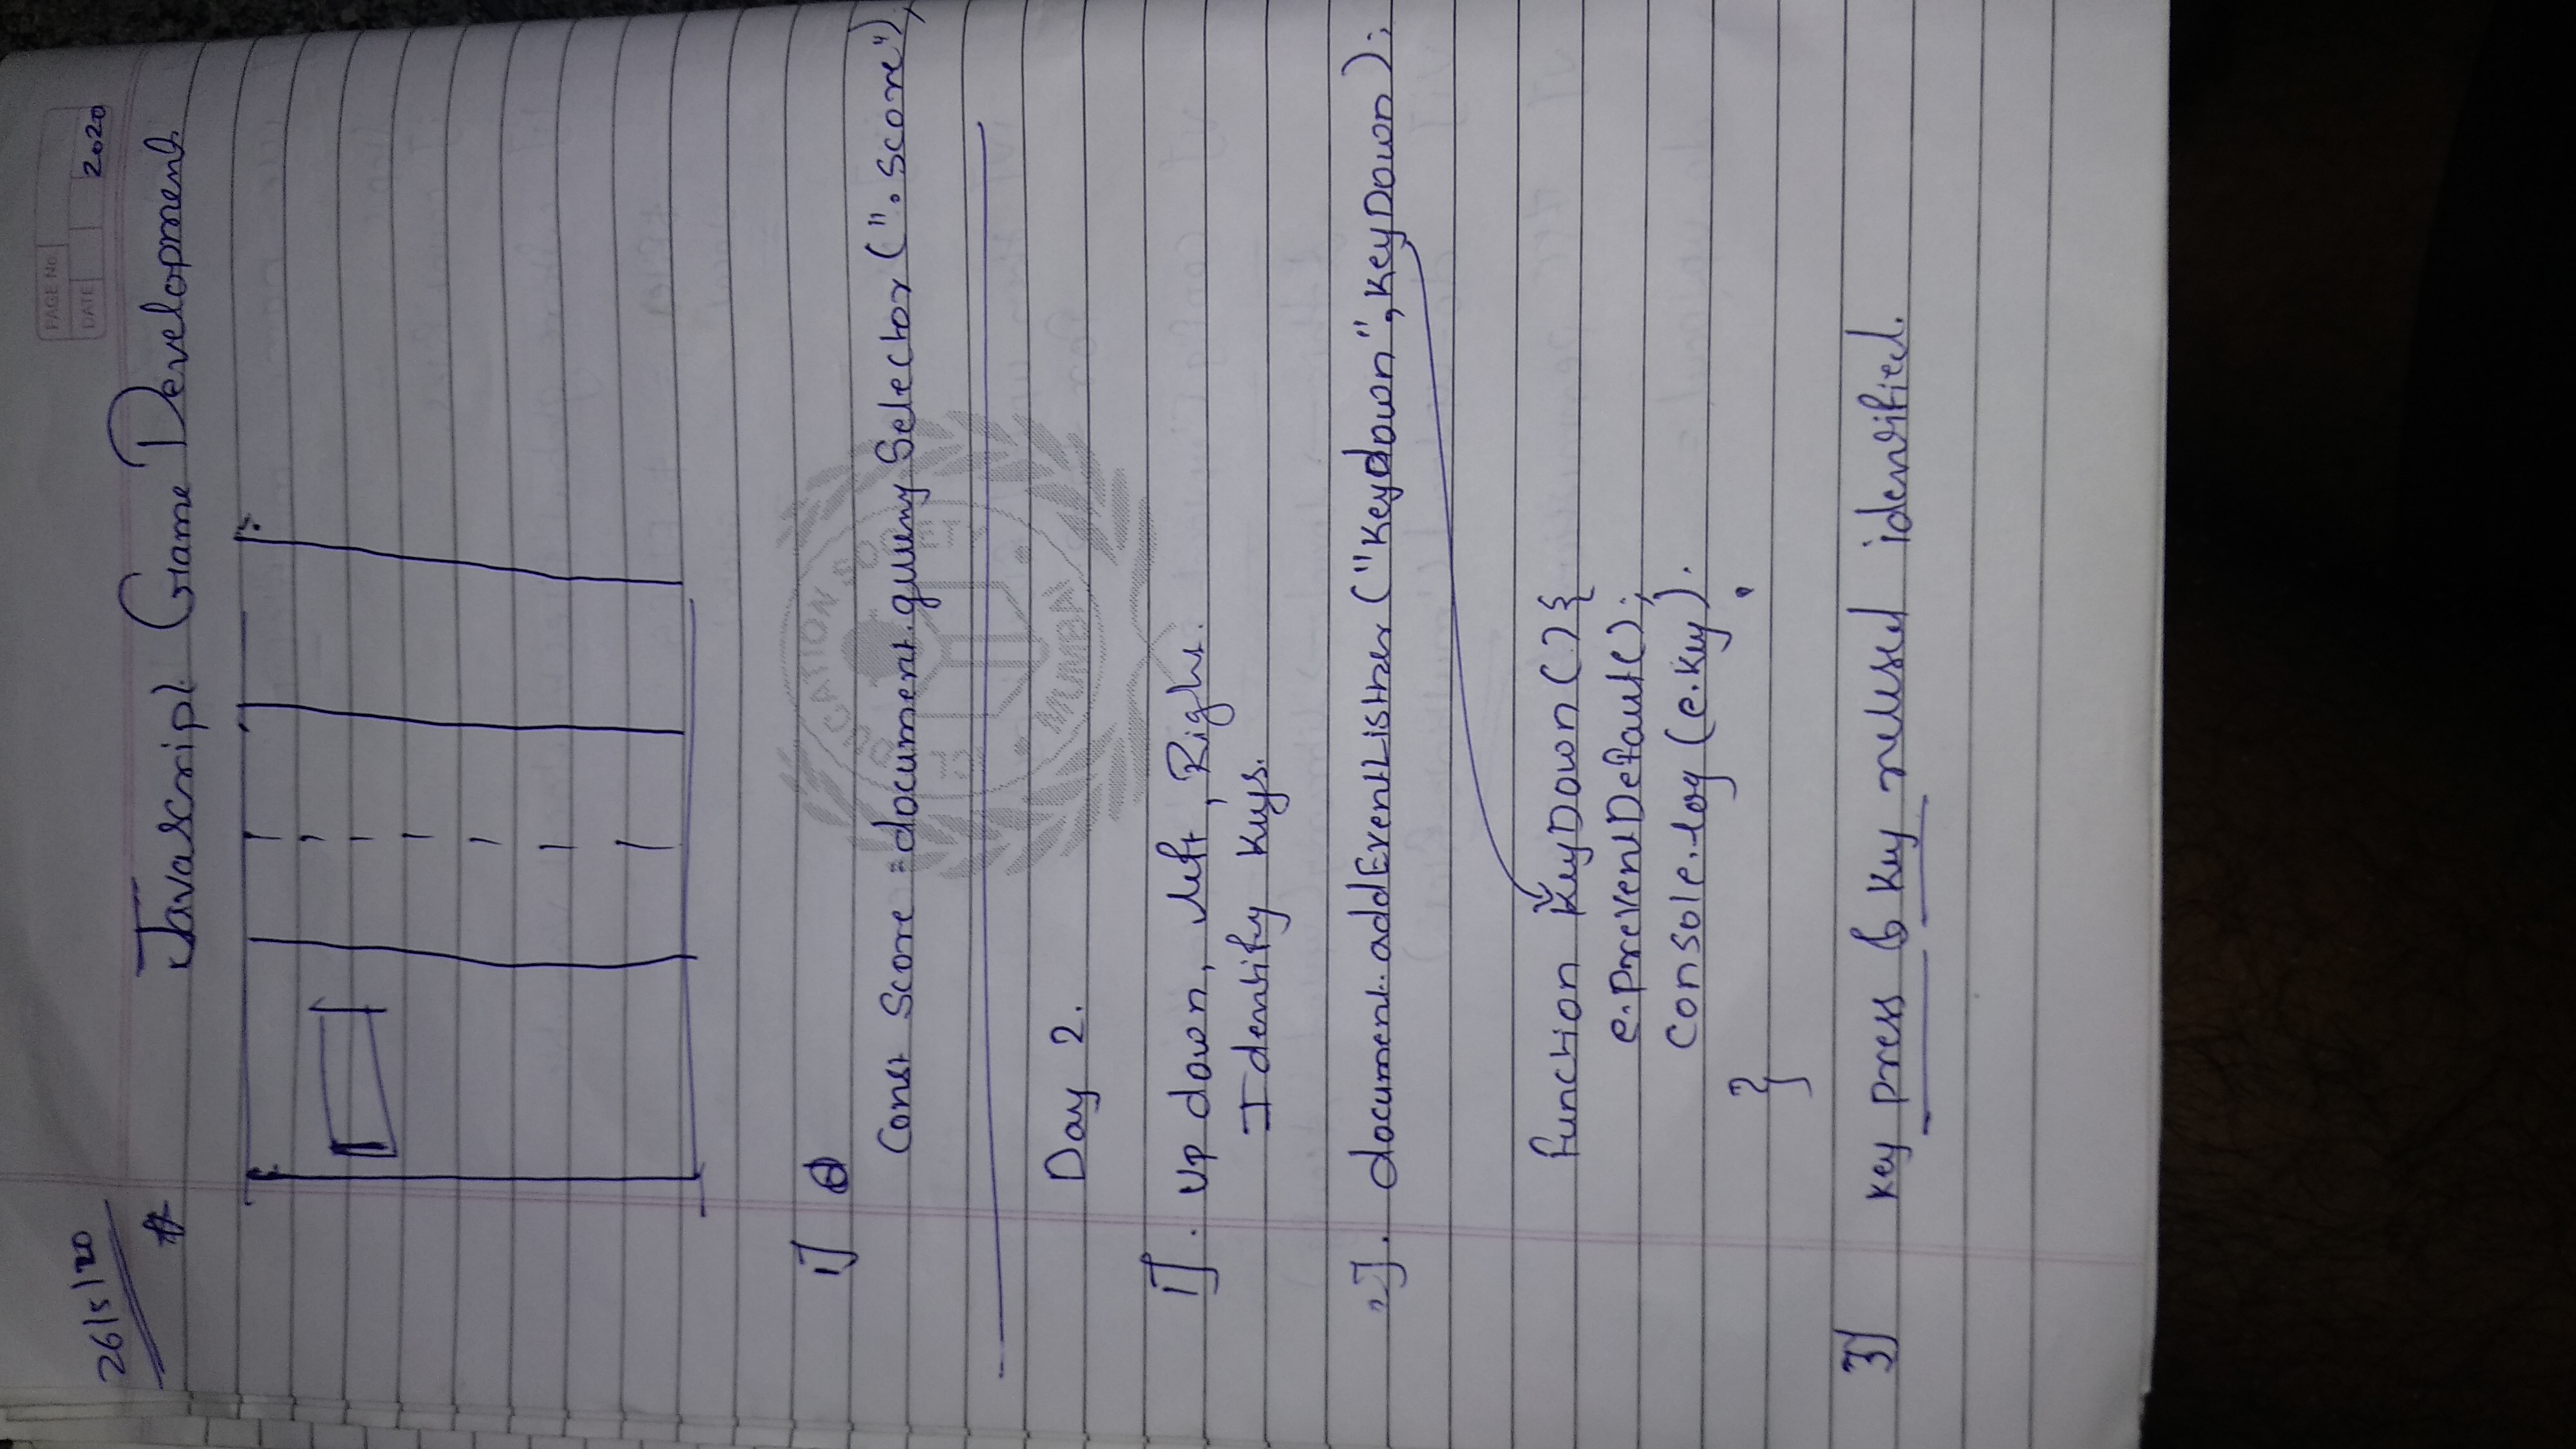 PAGE No.
DATE 2020
26/5/20
# Javascript Game Development
1]
Const Score = document.queuny Selector (". Score");
Day 2.
1]. Up down, left, Right.
Identify Keys.
2]. document.addEventListner ("Keydown", KeyDown);
function KeyDown () {
e.preventDefault();
Console.log (e.key).
}
3] key press & key relesed identified.
EDUCATION SOCIETY
MUMBAI